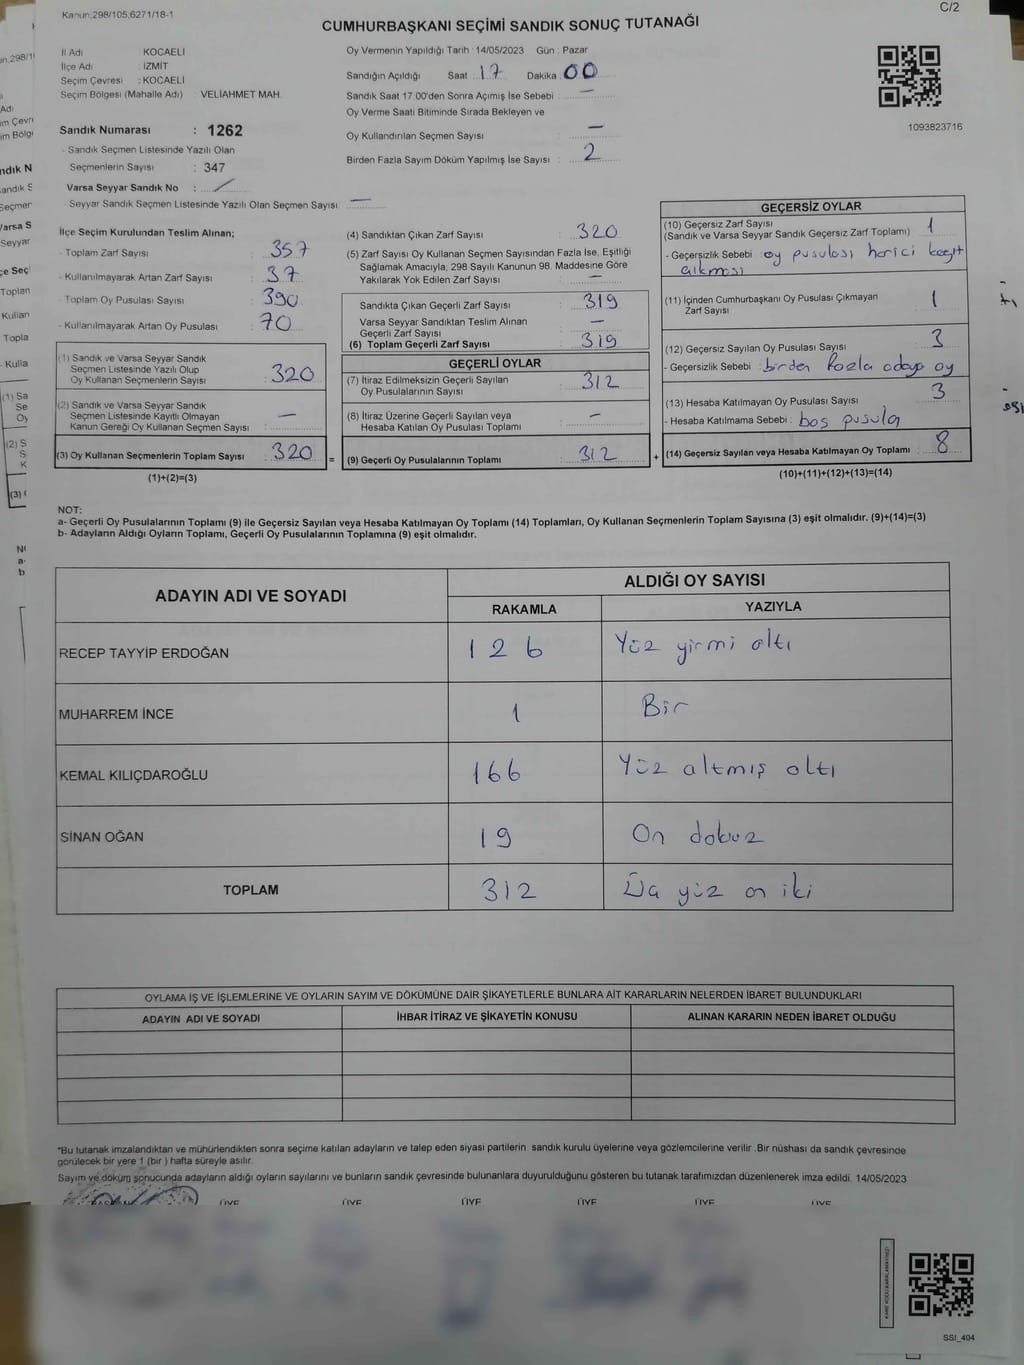 Kanun:298/105;6271/18-1
C/2
CUMHURBAŞKANI SEÇİMİ SANDIK SONUÇ TUTANAĞI
İl Adı KOCAELİ
İlçe Adı : İZMİT
Seçim Çevresi : KOCAELİ
Seçim Bölgesi (Mahalle Adı) : VELİAHMET MAH.
Sandık Numarası : 1262
- Sandık Seçmen Listesinde Yazılı Olan
Seçmenlerin Sayısı : 347
Varsa Seyyar Sandık No : /
- Seyyar Sandık Seçmen Listesinde Yazılı Olan Seçmen Sayısı: —
Oy Vermenin Yapıldığı Tarih : 14/05/2023 Gün : Pazar
Sandığın Açıldığı Saat : 17 Dakika 00
Sandık Saat 17:00'den Sonra Açımış İse Sebebi : —
Oy Verme Saati Bitiminde Sırada Bekleyen ve
Oy Kullandırılan Seçmen Sayısı —
Birden Fazla Sayım Döküm Yapılmış İse Sayısı : 2
1093823716
İlçe Seçim Kurulundan Teslim Alınan;
- Toplam Zarf Sayısı : 357
- Kullanılmayarak Artan Zarf Sayısı : 37
- Toplam Oy Pusulası Sayısı : 390
- Kullanılmayarak Artan Oy Pusulası : 70
(1) Sandık ve Varsa Seyyar Sandık
Seçmen Listesinde Yazılı Olup
Oy Kullanan Seçmenlerin Sayısı : 320
(2) Sandık ve Varsa Seyyar Sandık
Seçmen Listesinde Kayıtlı Olmayan
Kanun Gereği Oy Kullanan Seçmen Sayısı : —
(3) Oy Kullanan Seçmenlerin Toplam Sayısı : 320 =
(1)+(2)=(3)
(4) Sandıktan Çıkan Zarf Sayısı : 320
(5) Zarf Sayısı Oy Kullanan Seçmen Sayısından Fazla İse, Eşitliği
Sağlamak Amacıyla; 298 Sayılı Kanunun 98. Maddesine Göre
Yakılarak Yok Edilen Zarf Sayısı : —
Sandıkta Çıkan Geçerli Zarf Sayısı : 319
Varsa Seyyar Sandıktan Teslim Alınan
Geçerli Zarf Sayısı : —
(6) Toplam Geçerli Zarf Sayısı : 319
GEÇERLİ OYLAR
(7) İtiraz Edilmeksizin Geçerli Sayılan
Oy Pusulalarının Sayısı : 312
(8) İtiraz Üzerine Geçerli Sayılan veya
Hesaba Katılan Oy Pusulası Toplamı : —
(9) Geçerli Oy Pusulalarının Toplamı : 312 +
GEÇERSİZ OYLAR
(10) Geçersiz Zarf Sayısı
(Sandık ve Varsa Seyyar Sandık Geçersiz Zarf Toplamı) : 1
- Geçersizlik Sebebi : oy pusulası harici kağıt
çıkması
(11) İçinden Cumhurbaşkanı Oy Pusulası Çıkmayan
Zarf Sayısı : 1
(12) Geçersiz Sayılan Oy Pusulası Sayısı : 3
- Geçersizlik Sebebi : birden fazla adaya oy
(13) Hesaba Katılmayan Oy Pusulası Sayısı : 3
- Hesaba Katılmama Sebebi : boş pusula
(14) Geçersiz Sayılan veya Hesaba Katılmayan Oy Toplamı : 8
(10)+(11)+(12)+(13)=(14)
NOT:
a- Geçerli Oy Pusulalarının Toplamı (9) ile Geçersiz Sayılan veya Hesaba Katılmayan Oy Toplamı (14) Toplamları, Oy Kullanan Seçmenlerin Toplam Sayısına (3) eşit olmalıdır. (9)+(14)=(3)
b- Adayların Aldığı Oyların Toplamı, Geçerli Oy Pusulalarının Toplamına (9) eşit olmalıdır.
ADAYIN ADI VE SOYADI ALDIĞI OY SAYISI
RAKAMLA YAZIYLA
RECEP TAYYİP ERDOĞAN 126 Yüz yirmi altı
MUHARREM İNCE 1 Bir
KEMAL KILIÇDAROĞLU 166 Yüz altmış altı
SİNAN OĞAN 19 On dokuz
TOPLAM 312 Üç yüz on iki
OYLAMA İŞ VE İŞLEMLERİNE VE OYLARIN SAYIM VE DÖKÜMÜNE DAİR ŞİKAYETLERLE BUNLARA AİT KARARLARIN NELERDEN İBARET BULUNDUKLARI
ADAYIN ADI VE SOYADI İHBAR İTİRAZ VE ŞİKAYETİN KONUSU ALINAN KARARIN NEDEN İBARET OLDUĞU
*Bu tutanak imzalandıktan ve mühürlendikten sonra seçime katılan adayların ve talep eden siyasi partilerin sandık kurulu üyelerine veya gözlemcilerine verilir. Bir nüshası da sandık çevresinde
görülecek bir yere 1 (bir) hafta süreyle asılır.
Sayım ve döküm sonucunda adayların aldığı oyların sayılarını ve bunların sandık çevresinde bulunanlara duyurulduğunu gösteren bu tutanak tarafımızdan düzenlenerek imza edildi. 14/05/2023
ÜYE ÜYE ÜYE ÜYE ÜYE ÜYE
SSI_404